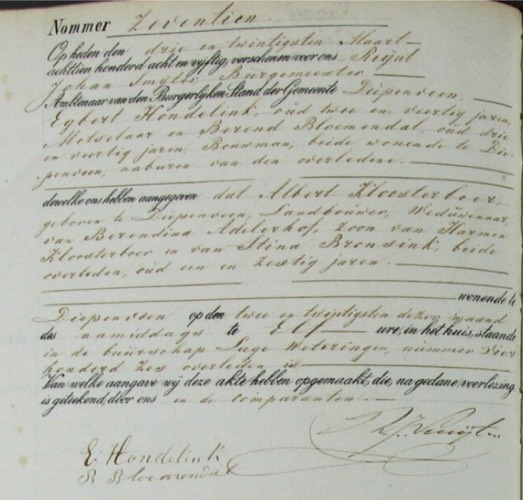 Nommer Zeventien
Op heden den drie en twintigsten Maart
achttien honderd acht en vijftig, verschenen voor ons Reijnt
Johan Burgemeester
Ambtenaar van den Burgerlijken Stand der Gemeente Diepenveen,
Egbert Hondelink, oud twee en veertig jaren,
Metselaar en Berend Bloemendal, oud drie
en veertig jaren, Bouwman, beide wonende te Die-
penveen, naburen van den overledene.
dewelke ons hebben aangegeven dat Albert Kloosterboer
geboren te Diepenveen, Landbouwer, Weduwenaar,
van Berendina Adelerhof, zoon van Harmen
Kloosterboer en van Stina Bronsink beide
overleden, oud een en zestig jaren.
wonende te
Diepenveen op den twee en twintigsten dezer maand
des namiddags te Elf ure, in het huis, staande
in de buurschap Lage Weteringen, nummer Vier
honderd zes overleden is
Van welke aangave wij deze akte hebben opgemaakt, die, na gedane voorlezing
is geteekend, door ons en de comparanten.
E. Hondelink
B Bloemendal